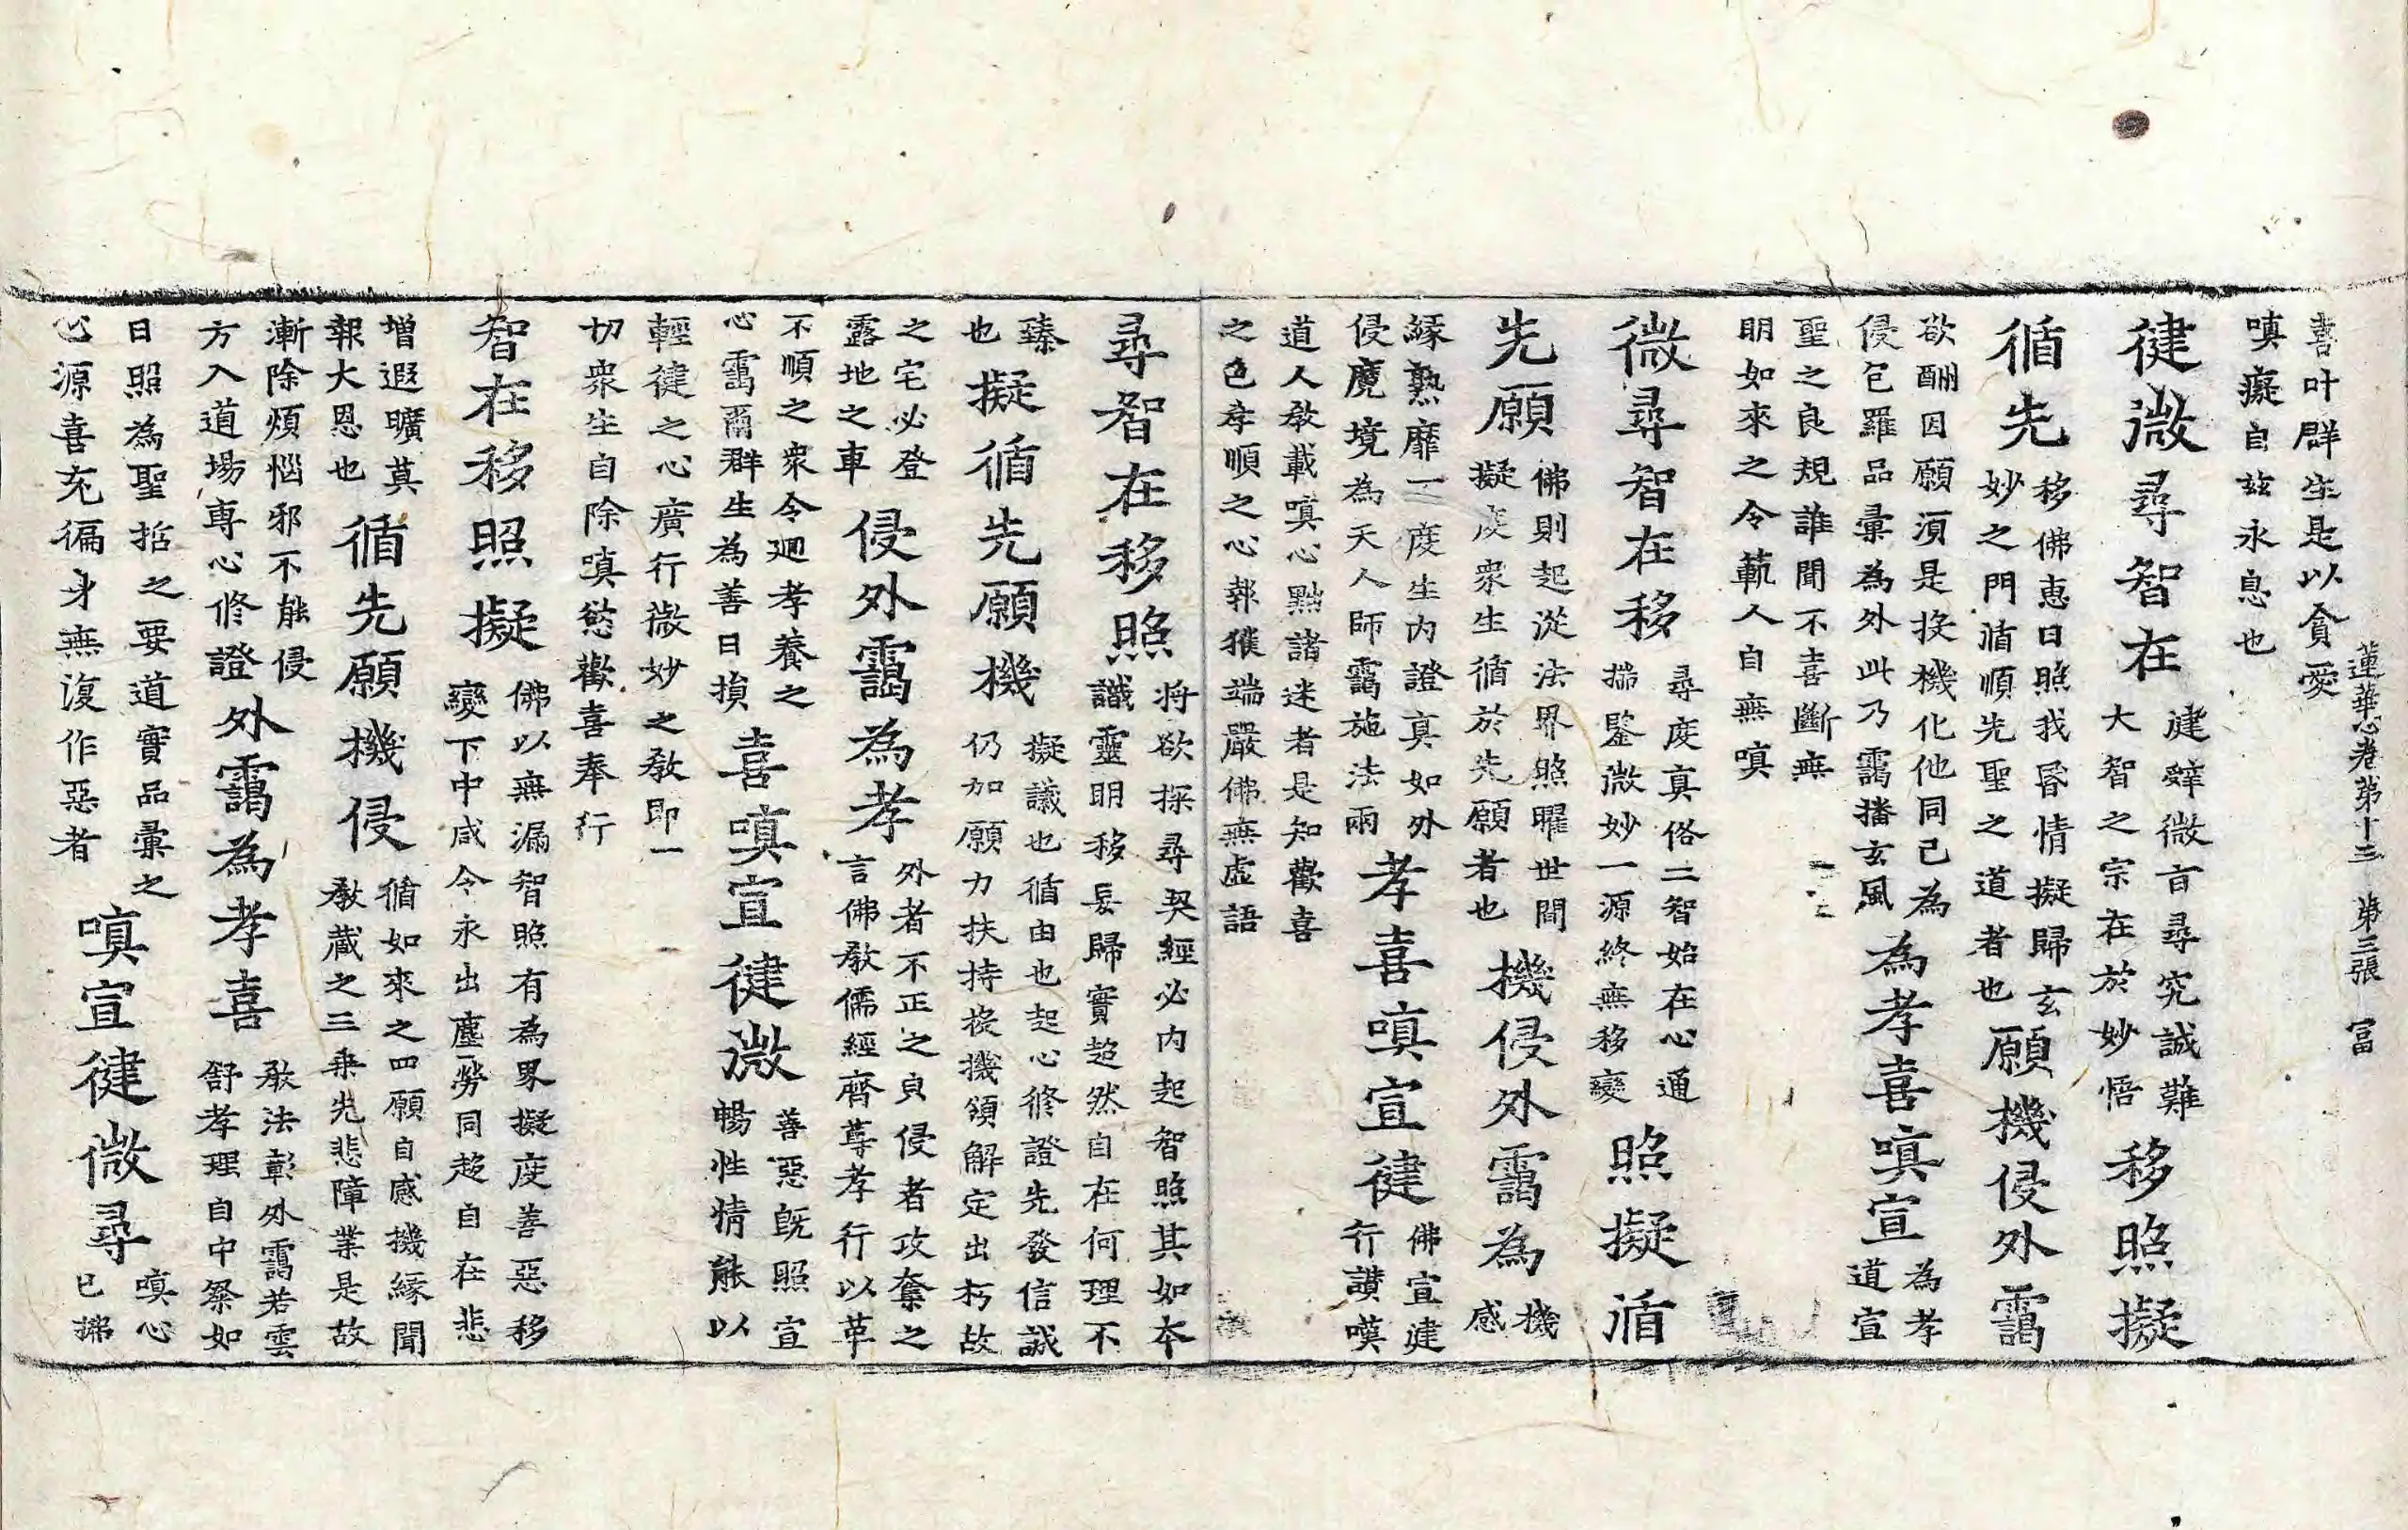 蓮華心卷第十三　第三張　冨
喜叶群生是以貪愛
嗔癡自兹永息也
徤微尋智在
建辝微言尋究誠難
大智之宗在於妙悟
移照擬
循先
移佛惠日照我昏情擬歸玄
妙之門循順先聖之道者也
願機侵外靄
欲酬因願須是投機化他同己為
侵包羅品彙為外此乃靄播玄風
為孝喜嗔宣
為孝
道宣
聖之良規誰聞不喜斷無
明如來之令範人自無嗔
微尋智在移
尋度真俗二智始在心通
揣鑒微妙一源終無移變
照擬循
先願
佛則起從法界照曜世間
擬度衆生循於先願者也
機侵外靄為
機
感
緣熟靡一度生内證真如外
侵魔境為天人師靄施法雨
孝喜嗔宣徤
佛宣建
行讃嘆
道人教載嗔心點諸迷者是知歡喜
之色孝順之心報獲端嚴佛無虛語
尋智在移照
将欲探尋契經必内起智照其如本
識靈明移妄歸實超然自在何理不
臻
也
擬循先願機
擬議也循由也起心修證先發信誠
仍加願力扶持投機領解定出朽故
之宅必登
露地之車
侵外靄為孝
外者不正之皃侵者攻奪之
言佛教儒經齊尊孝行以革
不順之衆令迴孝養之
心靄爾群生為善日損
喜嗔宣徤微
善惡既照宣
暢性情能以
輕徤之心廣行微妙之教即一
切衆生自除嗔慾歡喜奉行
智在移照擬
佛以無漏智照有為界擬度善惡移
變下中咸令永出塵勞同超自在悲
增遐曠莫
報大恩也
循先願機侵
循如來之四願自感機緣聞
教藏之三乘先悲障業是故
漸除煩惱邪不能侵
方入道場專心修證
外靄為孝喜
教法彰外靄若雲
舒孝理自中粲如
日照為聖哲之要道實品彙之
心源喜充徧身無復作惡者
嗔宣徤微尋
嗔心
已拂